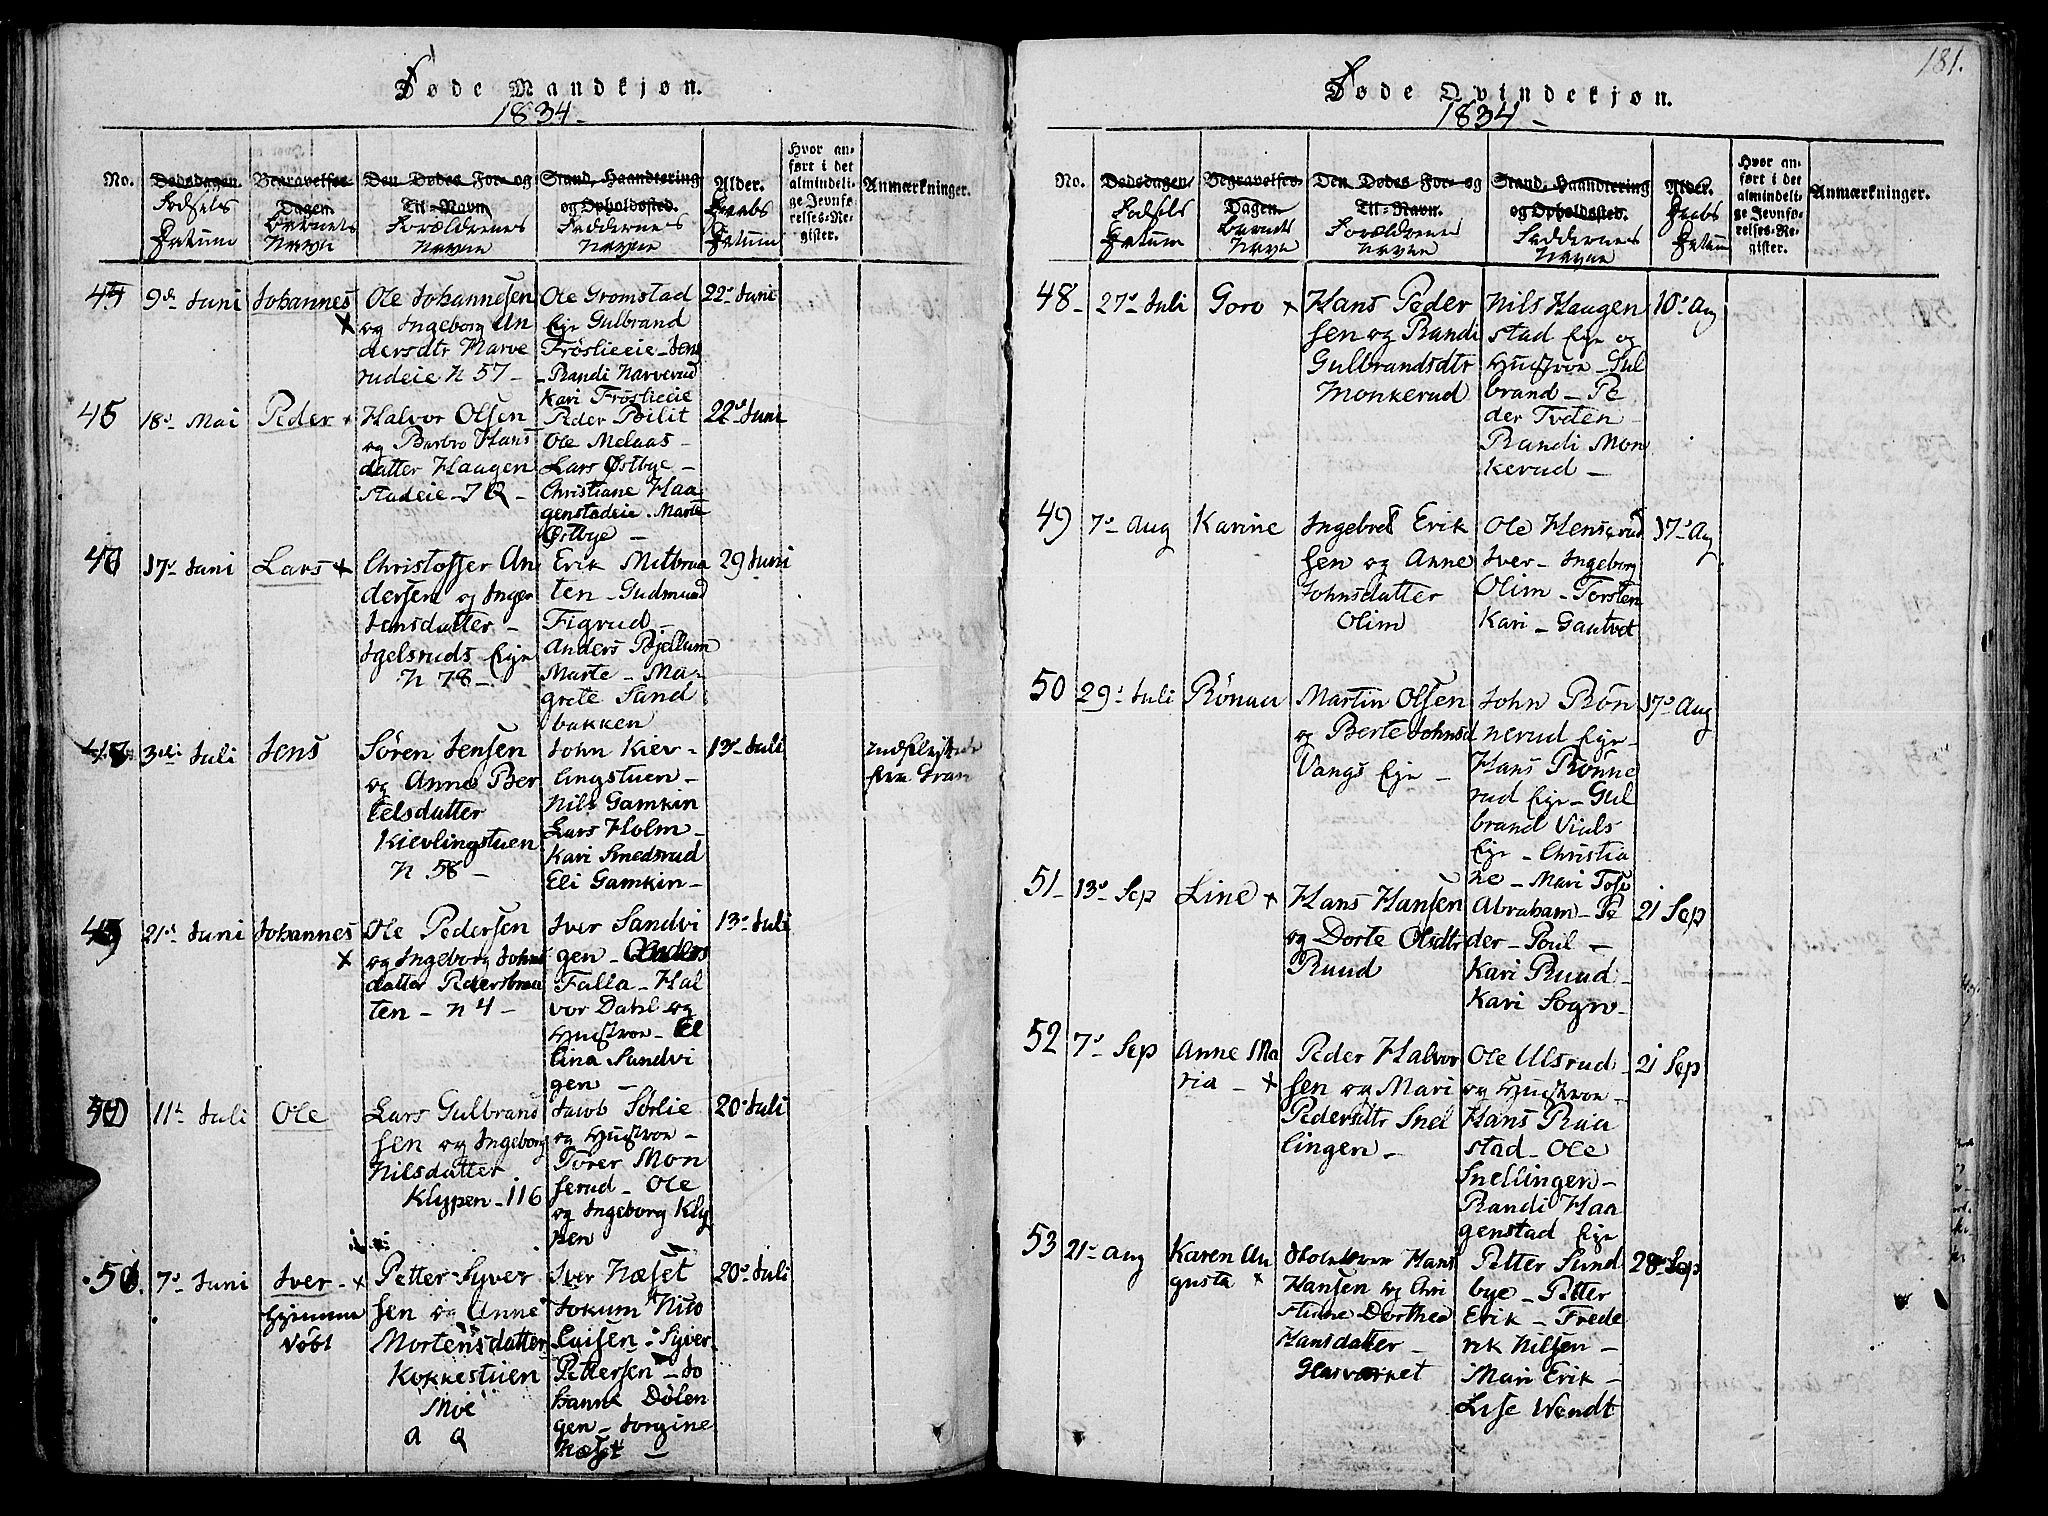 Føde Mandkjøn.
1834 –
No.
Dødsdagen
Fødsels
Datum
Begravelses
Dagen
Barnets
Navn
Den Dødes For- og
Til-Navn
Forældrenes
Navne
Stand, Haandtering
og Opholdssted.
Faddernes
Navne
Alder.
Daabs
Datum
Hvor an-
ført i det
almindeli-
ge Jevnfø-
relses-Re-
gister.
Anmærkninger.
44
9de Juni
Johannes
×
Ole Johannesen
og Ingeborg An
dersdtr Narve
rudeie N 57 –
Ole Gromstad
Eje Gulbrand
Fröslieeie – Jens
– Randi Narverud
Kari Fröslieeie
22de Juni
45
18de Mai
Peder ×
Halvor Olsen
og Barbro Hans
datter Haagen
stadeie –
Peder Bilit
Ole Melaas –
Lars Østbye –
Christiane Haa
genstadeie. Marte
Østbye –
22de Juni
17de Juni
Lars ×
Christoffer An
dersen og Inger
Jensdatter –
Igelsruds Eje
N 78 –
Erik Mitbraa
ten – Gudmund
Figrud –
Anders Bjellum
Marte – Ma-
grete Sand
bakken
29 Juni
3die Juli
Jens
Sören Jensen
og Anne Ber
telsdatter
Kievlingstuen
N 58 –
John Kiev –
lingstuen –
Nils Gamkin
Lars Holm –
Kari Smedsrud
Eli Gamkin –
13de Juli
Indflyttede
fra Gran
21de Juni
Johannes
×
Ole Pedersen
og Ingeborg Johns
datter Pedersbraa
ten – N 4 –
Iver Sandvi
gen – Anders
Falla – Hal
vor Dahl og
Hustroe – El
lina Sandvi
gen –
13de Juli
11te Juli
Ole
Lars Gulbrand
sen og Ingeborg
Nilsdatter
Klypen – 116
Jacob Sørlie
og Hustroe –
Torer Mon
serud – Ole
og Ingeborg Kly
pen
20de Juli
50
7de Juni
Iver – ×
Hjemme
döbt
Petter Syver
sen og Anne
Mortensdatter
Kokkestuen
Moe
Iver Næset
Jokum Nico
laisen – Syver
Pettersen – Jo
hanne Dølen
gen – Jorgine
Næset –
20de Juli
181.
Føde Qvindekjøn.
1834 –
No.
Dødsdagen
Fødsels
Datum
Begravelses
Dagen
Barnets
Navn
Den Dødes For- og
Til-Navn.
Forældrenes
Navne
Stand, Haandtering
og Opholdssted.
Faddernes
Navne
Alder.
Daabs
Datum
Hvor an-
ført i det
almindeli-
ge Jevnfø-
relses-Re-
gister.
Anmærkninger.
48 –
27de Juli
Goro ×
Hans Peder
sen og Randi
Gulbrandsdtr
Monkerud
Nils Haagen
stad Eje og
Hustroe – Gul
brand – Pe
der Tveten
Randi Mon
kerud –
10de Aug
49
7de Aug
Karine
Ingebret Erik
sen og Anne
Johnsdatter
Olim
Ole Hensrud
Iver – Ingeborg
Olim – Torsten
Kari – Gautvet
17de Aug
50
29de Juli
Rønau
Martin Olsen
og Berte Johnsd
Vangs Eje –
John Røn
nerud Eje –
Hans Rønne
rud Eje – Gul
brand Viuls
Eje – Christia
ne – Mari Tose
17de Aug
51 –
13de Sep
Line ×
Hans Hansen
og Dorte Olsdtr
Ruud
Abraham – Pe
der – Poul –
Kari Ruud –
Kari Sogn –
21 Sep
52
7de Sep
Anne Ma
ria – ×
Peder Halvor
sen og Mari
Pedersdtr Snel
lingen –
Ole Ulsrud –
og Hustroe –
Hans Raa
stad – Ole
Snellingen –
Randi Haa
genstad Eje
21 Sep
53
21de Aug
Karen Au
gusta ×
Hans
Hansen og Chri
stiane Dorthea
Hansdatter –
Glasværket
Petter Sund
bye – Petter
Erik – Frede
rik Nilsen –
Mari Erik –
Lise Wendt
28de Sep